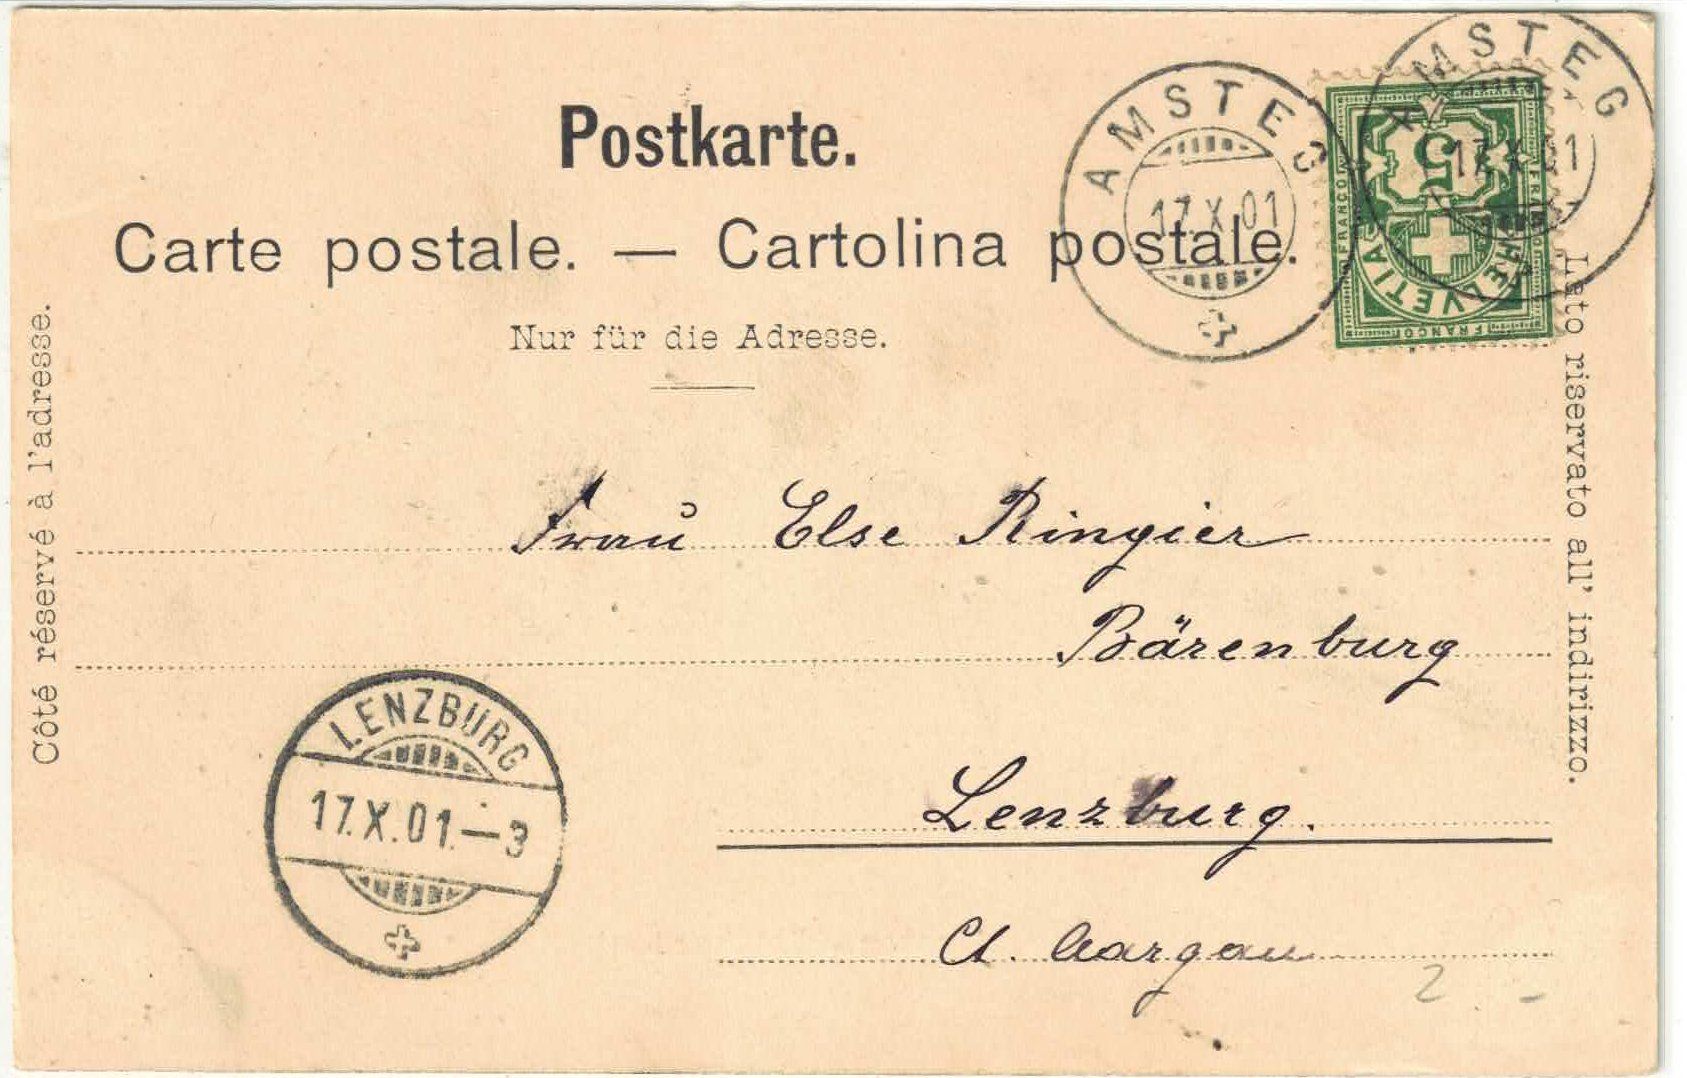 Postkarte.
Carte postale. — Cartolina postale.
Nur für die Adresse.
Côté réservé à l'adresse.
Lato riservato all' indirizzo.
AMSTEG
17.X.01
AMSTEG
17.X.01
5
HELVETIA
FRANCO
FRANCO
FRANCO
Frau Else Ringier
Bärenburg
Lenzburg.
Ct. Aargau
LENZBURG
17.X.01.—3
2 . -